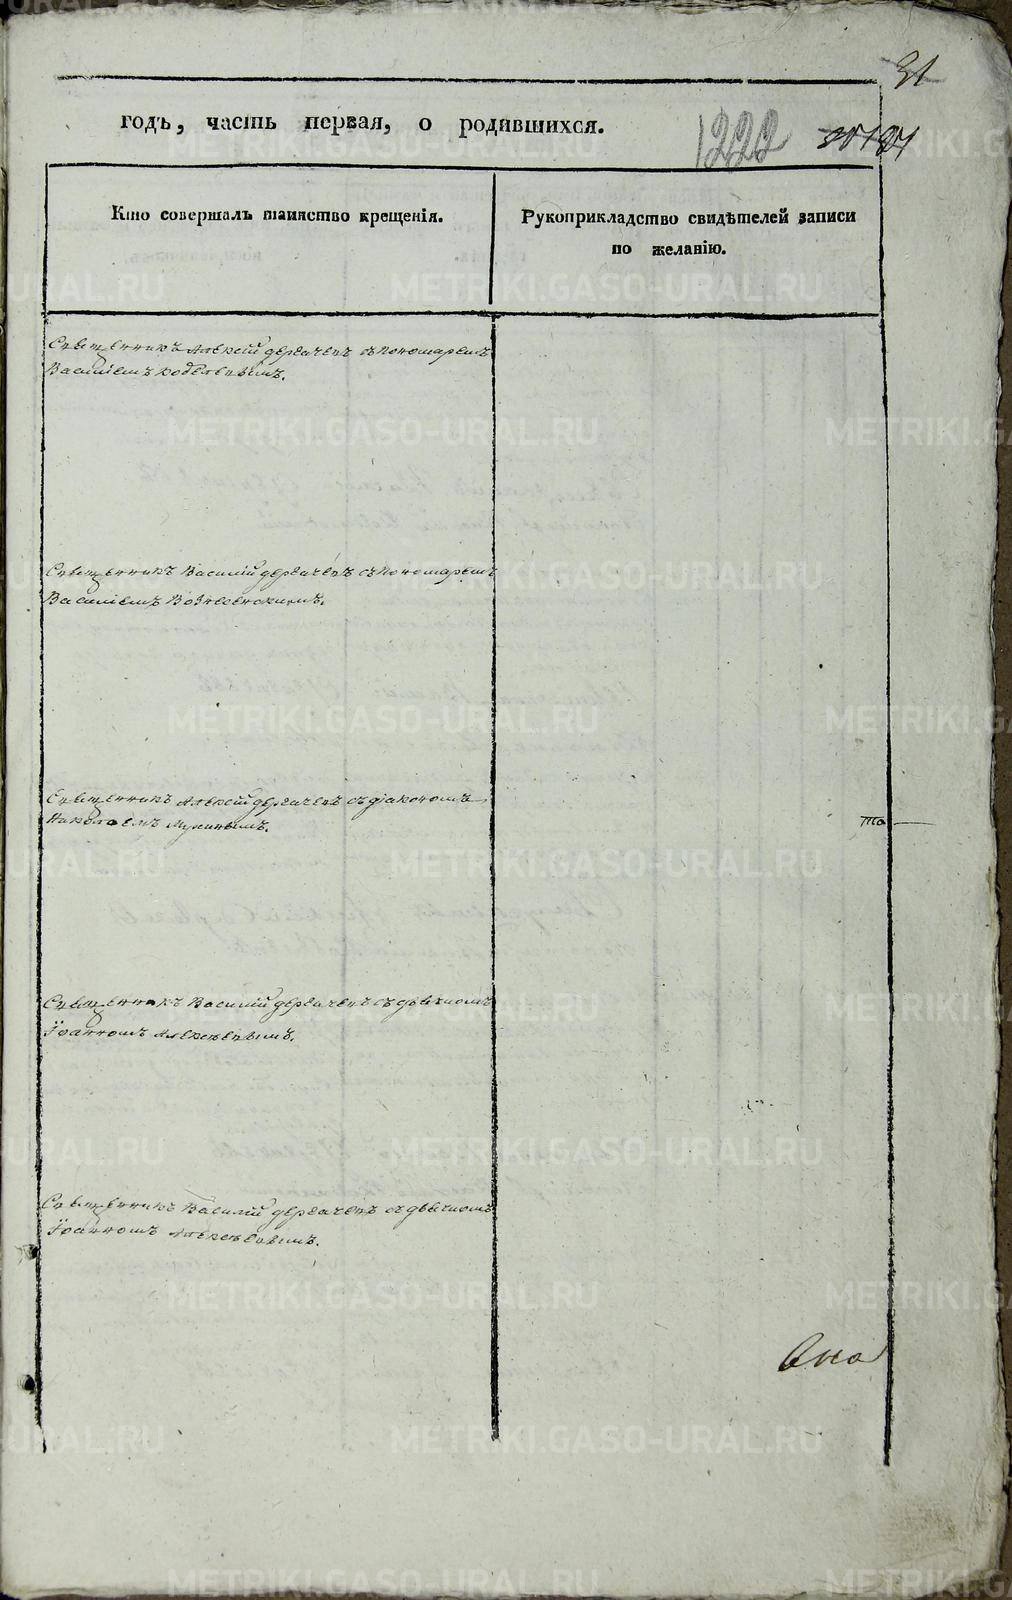 31
годъ, часть первая, о родившихся.
1222
Кто совершалъ таинство крещенія.
Рукоприкладство свидѣтелей записи
по желанію.
Священникъ Алексій Дергачевъ съ пономаремъ
Василіемъ
Священникъ Василій Дергачевъ съ пономаремъ
Василіемъ Вознесенскимъ.
Священникъ Алексій Дергачевъ съ діакономъ
Николаемъ
то
Священникъ Василій Дергачевъ съ дьячкомъ
Іоанномъ Алексѣевымъ.
Священникъ Василій Дергачевъ съ дьячкомъ
Іоанномъ Алексѣевымъ.
METRIKI.GASO-URAL.RU